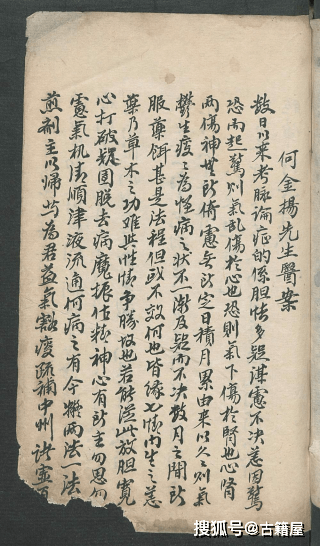 何金揚先生醫案
數日以來考脉論症的係胆怯多疑謀慮不决蓋因驚
恐而起驚則氣乱傷於心也恐則氣下傷於腎也心腎
兩傷神無所倚慮無所定日積月累由來以久之則氣
鬱生痰之為怪病之狀不一漸及疑而不决数月之間所
服藥餌甚是法程但或不效何也皆緣七情內生之恙
藥乃草木之功难與性情争勝故也若能從此放胆寬
心打破疑团脱去病魔振作精神心有所主勿思勿
慮氣机清順津液流通何病之有今擬两法一法
煎剂主以歸芍為君益氣豁痰疏補中州
搜狐号@古籍屋